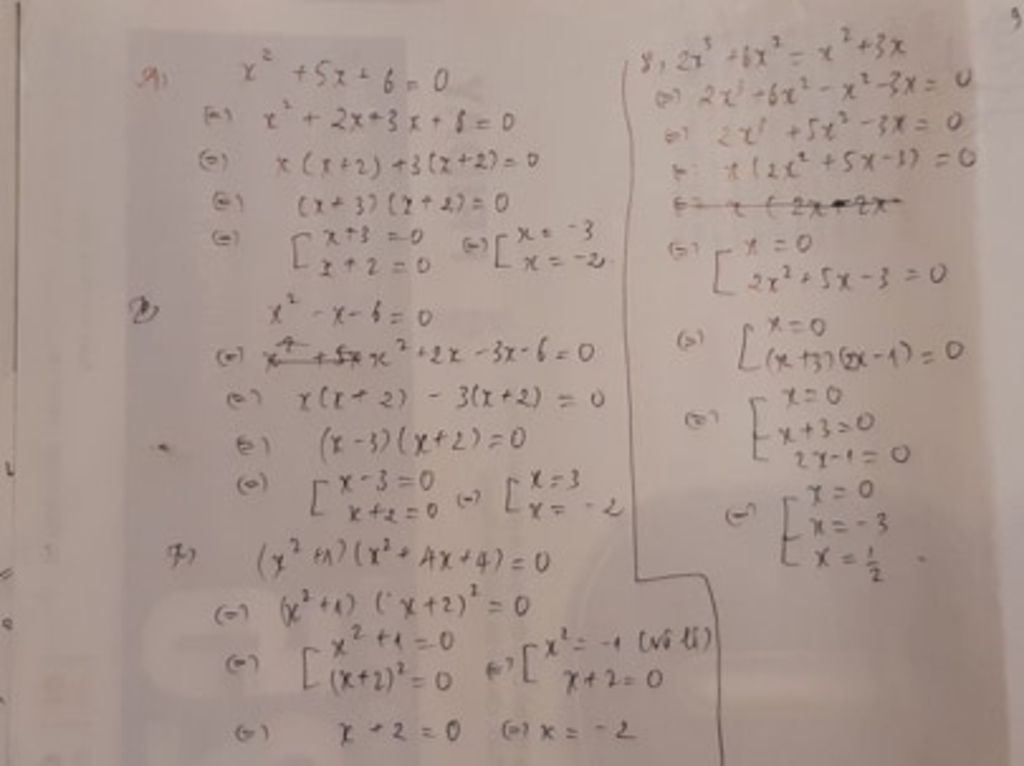 x² + 5x + 6 = 0
(=) x² + 2x + 3x + 6 = 0
(=) x(x+2) + 3(x+2) = 0
(=) (x+3)(x+2) = 0
(=) [ x+3 = 0 (=) [ x = -3
x+2 = 0 x = -2
x² - x - 6 = 0
(=) x² + 2x - 3x - 6 = 0
(=) x(x+2) - 3(x+2) = 0
(=) (x-3)(x+2) = 0
(=) [ x-3 = 0 (=) [ x = 3
x+2 = 0 x = -2
7) (x²+1)(x²+4x+4) = 0
(=) (x²+1)(x+2)² = 0
(=) [ x²+1 = 0 (=) [ x² = -1 (vô lí)
(x+2)² = 0 x+2 = 0
(=) x+2 = 0 (=) x = -2
8, 2x³ + 6x² = x² + 3x
(=) 2x³ + 6x² - x² - 3x = 0
(=) 2x³ + 5x² - 3x = 0
(=) x(2x² + 5x - 3) = 0
(=) x(2x + 2x
(=) [ x = 0
2x² + 5x - 3 = 0
(=) [ x = 0
(x+3)(2x-1) = 0
(=) [ x = 0
x+3 = 0
2x-1 = 0
(=) [ x = 0
x = -3
x = 1/2